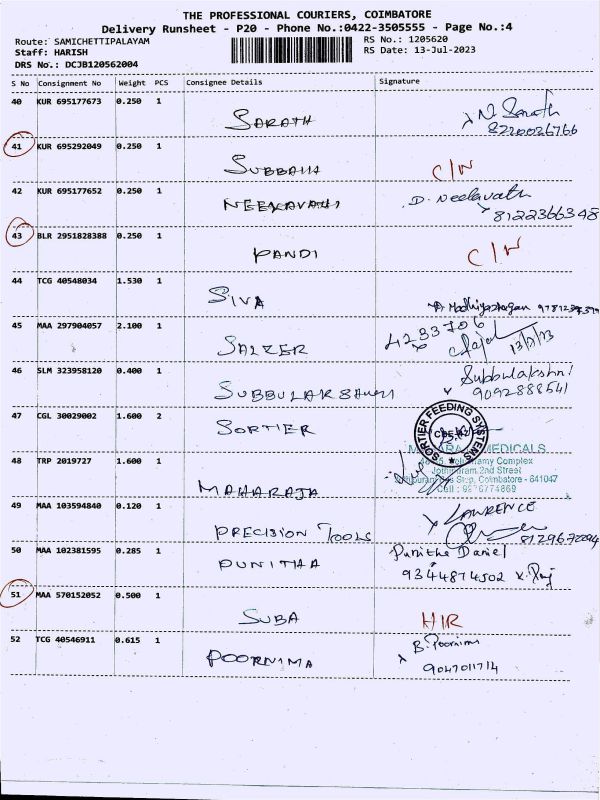 THE PROFESSIONAL COURIERS, COIMBATORE
Delivery Runsheet - P20 - Phone No.:0422-3505555 - Page No.:4
Route: SAMICHETTIPALAYAM
RS No.: 1205620
Staff: HARISH
RS Date: 13-Jul-2023
DRS No.: DCJB120562004
S No Consignment No Weight PCS Consignee Details Signature
40 KUR 695177673 0.250 1
SARATH N. Sarath
8220026766
41 KUR 695292049 0.250 1
SUBBAIH C/N
42 KUR 695177652 0.250 1
NEELAVATHI D. Neelavathi
8122366348
43 BLR 2951828388 0.250 1
PANDI C/N
44 TCG 40548034 1.530 1
SIVA
45 MAA 297904057 2.100 1
4233706
SALZER 13/7/23
46 SLM 323958120 0.400 1
Subbulakshmi
SUBBULAKSHMI 9092888541
47 CGL 30029002 1.600 2
SORTIER
SORTIER FEEDING SYSTEMS
CBE-42
48 TRP 2019727 1.600 1
MEDICALS
Complex
2nd Street
Stop, Coimbatore - 641047
MAHARAJA
49 MAA 103594840 0.120 1
LAWRENCE
PRECISION TOOLS
50 MAA 102381595 0.285 1
PUNITHA Punitha Daniel
9344874502
51 MAA 570152052 0.500 1
SUBA H/R
52 TCG 40546911 0.615 1
B. Poornima
POORNIMA
9047011714